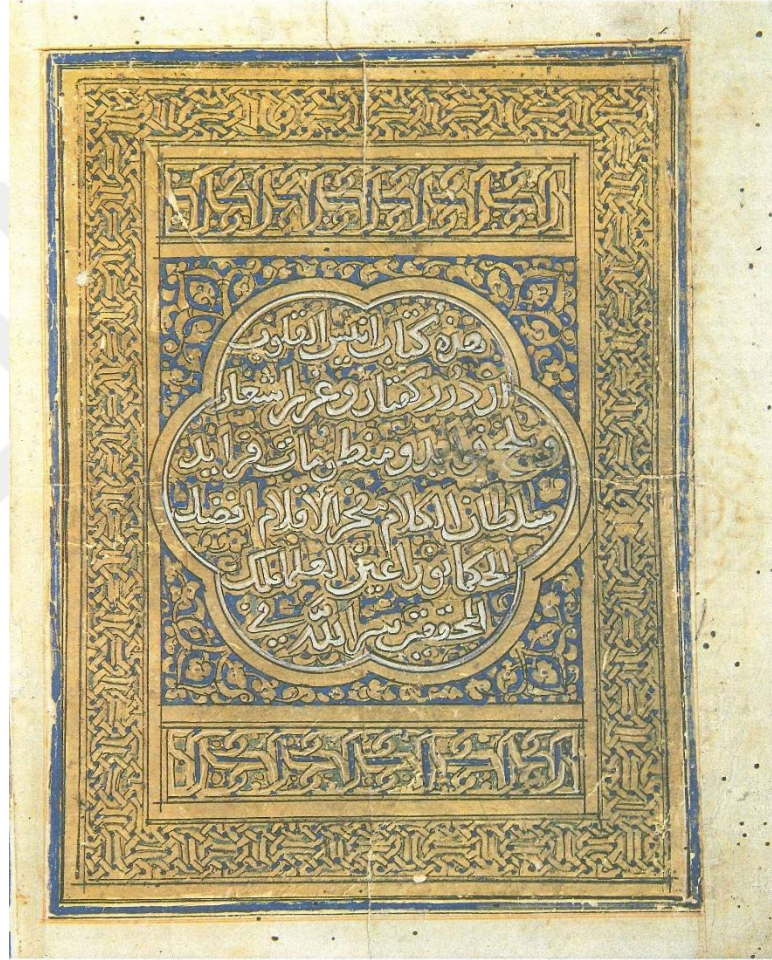 هذه كتاب انيس القلوب
از درر كفتار و غرر اشعار
و ملح فوايد و منظومات فرايد
سلطان الكلام مفخر الاقلام افضل
الحكما نور اعين العلما ملك
المحققين سر الله في